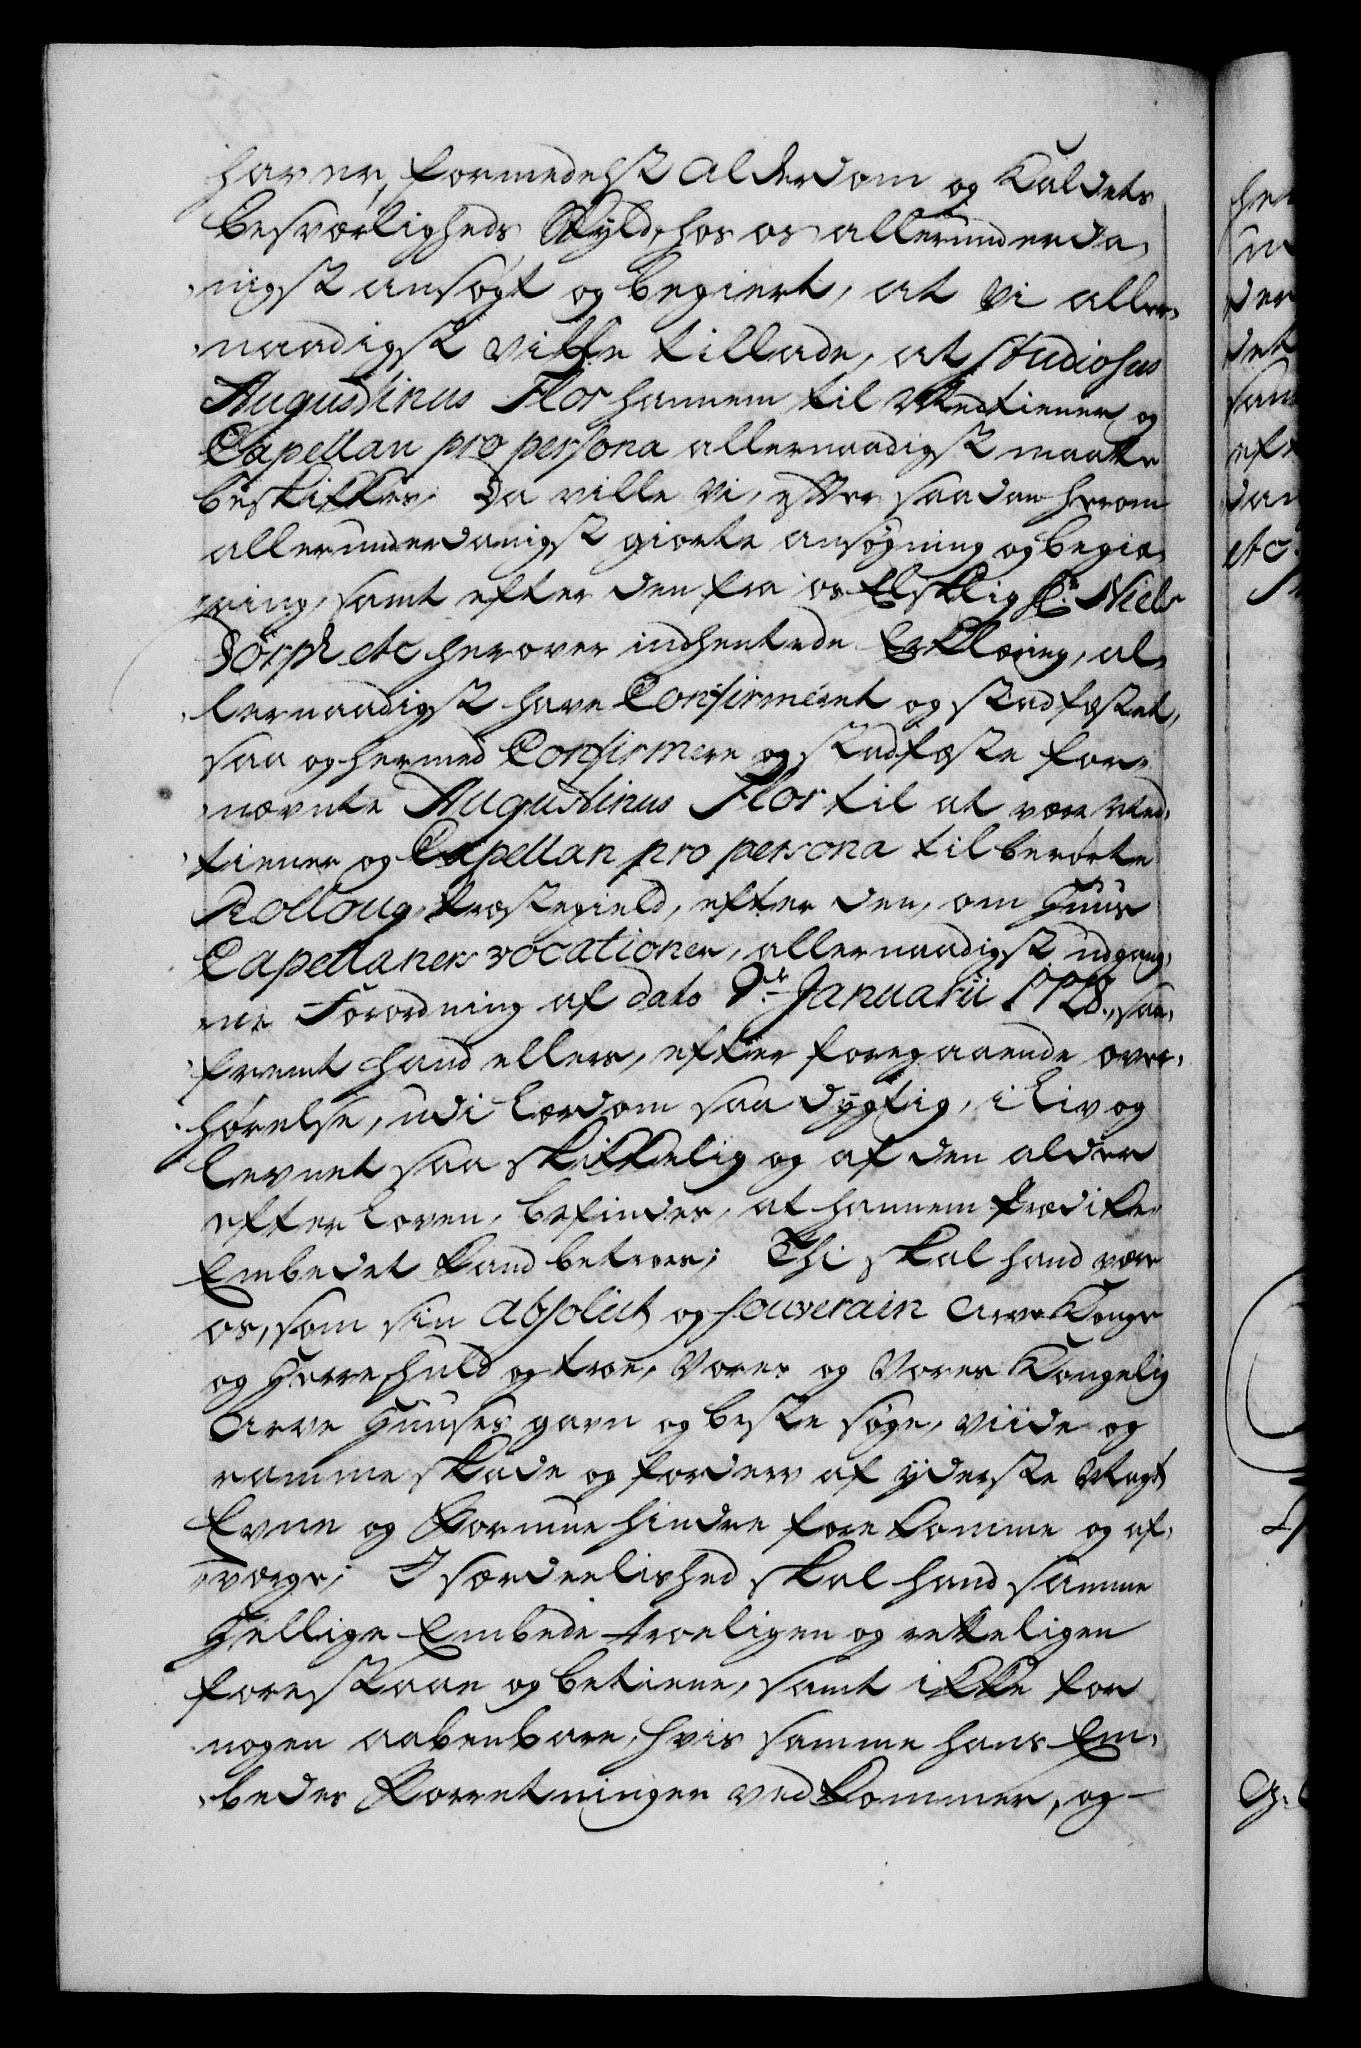 haver, formedelst Alderdom og Kaldets
besværligheds Skyld, hos os allerunderda-
nigst ansøgt og begiert, at Vi aller-
naadigst ville tillade, at Studiosus
Augustinus Flor hannem til Medtiener og
Capellan pro persona allernaadigst maatte
beskikkes; Da ville Vi, efter saadan herom
allerunderdanigst giorte ansøgning og begiæ-
ring, samt efter den fra os Elskelig Hr. Niels
Dorph etc herover indhentede Erklæring, al-
lernaadigst have Confirmeret og stadfæstet,
saa og hermed Confirmere og stadfæste for-
nævnte Augustinus Flor til at være Med-
tiener og Capellan pro persona til berørte
Rolloug Præstegield, efter den, om Huus
Capellaners vocationer, allernaadigst udgang-
ne Forordning af dato 9de Januarii 1728, saa-
fremt hand ellers, efter foregaaende over-
hørelse, udi Lærdom saa dygtig, i Liv og
Levnet saa skikkelig og af den alder
efter Loven, befindes, at hannem Prædike-
Embedet kand betroes; Thi skal hand være
os, som sin absolut og souverain Arve Konge
og Herre, huld og troe, Vores og Vores Kongelig
Arve Huuses gavn og beste søge, viide og
ramme, skade og forderv af yderste Magt
Evne og Formue hindre, forekomme og af-
værge; I særdeelished skal hand samme
Hellige Embede troeligen og retteligen
forestaae og betiene, samt ikke for
nogen aabenbare, hvis samme hans Em-
bedes Forretninger vedkommer, og